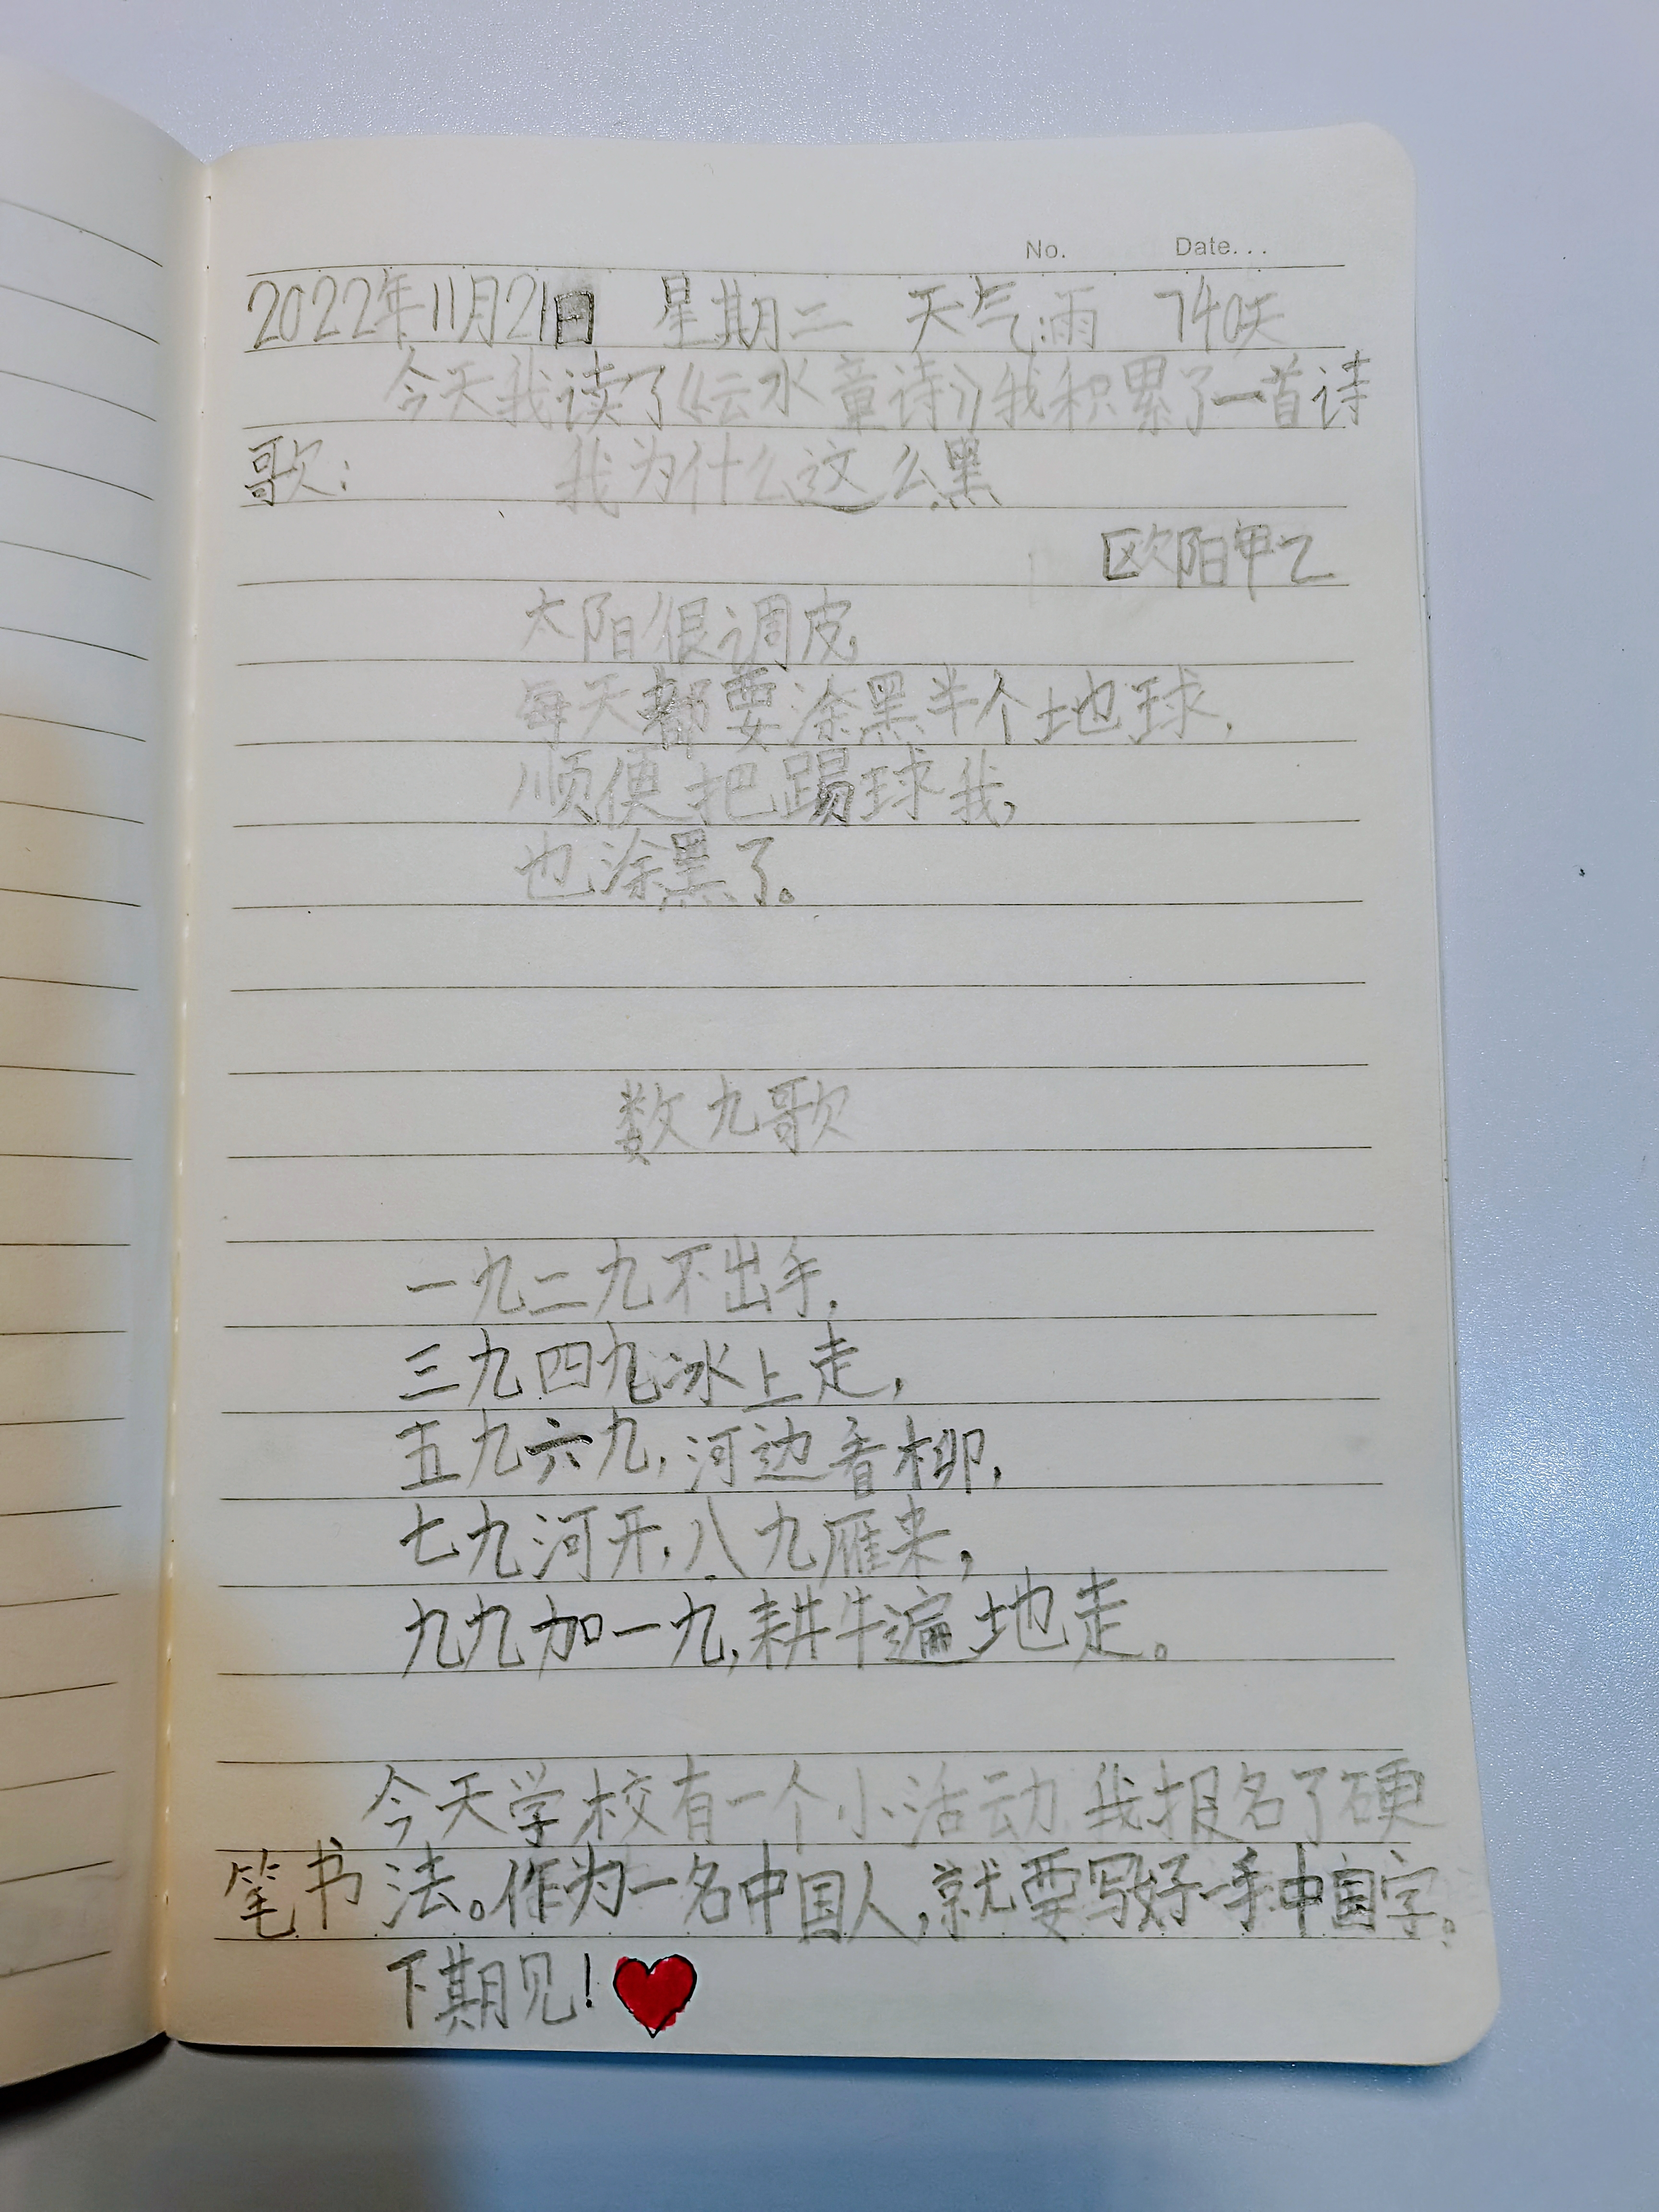 No. Date...
2022年11月21日 星期二 天气雨 740天
今天我读了《云水童诗》我积累了一首诗
歌: 我为什么这么黑
欧阳甲乙
太阳很调皮,
每天都要涂黑半个地球,
顺便把踢球我,
也涂黑了。
数九歌
一九二九不出手,
三九四九冰上走,
五九六九,河边看柳,
七九河开,八九雁来,
九九加一九,耕牛遍地走。
今天学校有一个小活动,我报名了硬
笔书法。作为一名中国人,就要写好一手中国字。
下期见!